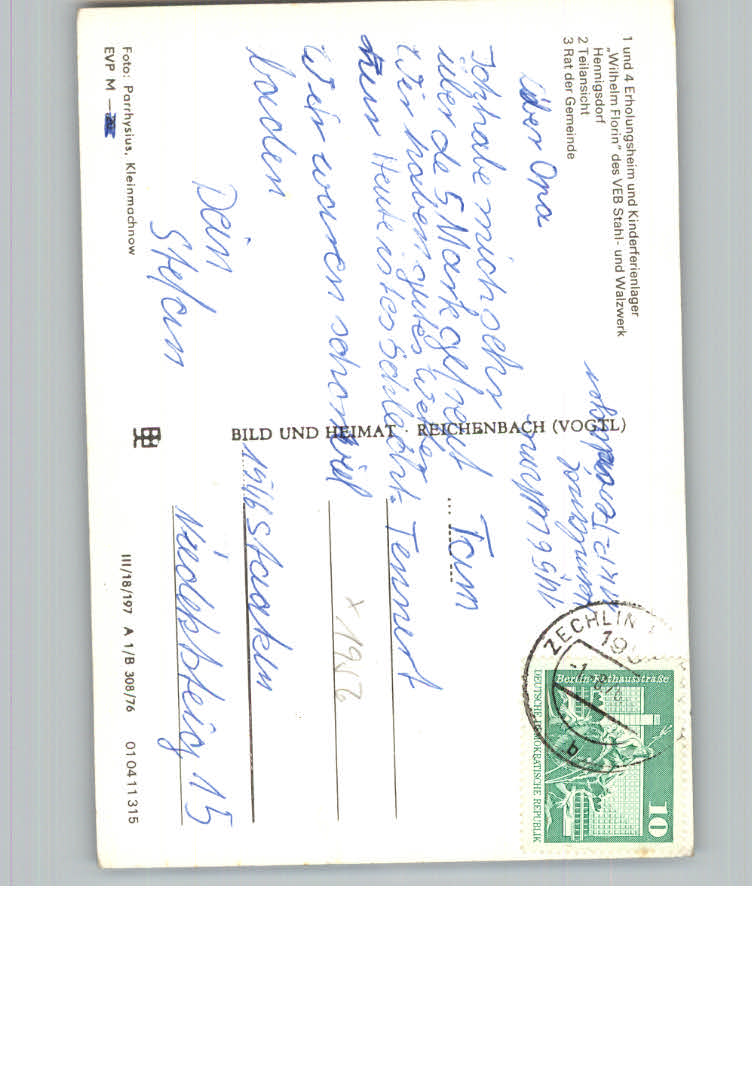 1 und 4 Erholungsheim und Kinderferienlager
„Wilhelm Florin" des VEB Stahl- und Walzwerk
Hennigsdorf
2 Teilansicht
3 Rat der Gemeinde
Liber Opa
Ich habe mich sehr
über de 5 Mark gefreut
Wir haben gutes Wetter
nur Heute ist es Schlächt.
Wir waren schon viel
baden
Dein
Stefan
Foto: Parrhysius, Kleinmachnow
EVP M
BILD UND HEIMAT · REICHENBACH (VOGTL)
Fam
Tennert
x 1956
1546 Staaken
15
III/18/197 A 1/B 308/76 01 04 11 315
ZECHLIN
b
Berlin-Rathausstraße
DEUTSCHE DEMOKRATISCHE REPUBLIK
10